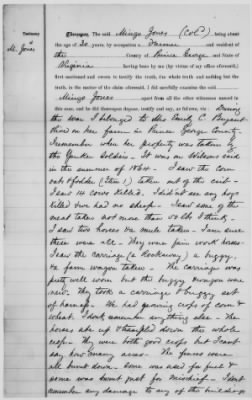 Testimony
of
M. Jones
Thereupon, The said Mingo Jones (Col'd), being about
the age of 30 years, by occupation a Farmer and resident of
the County of Prince George and State of
Virginia having been by me (by virtue of my office aforesaid),
first cautioned and sworn to testify the truth, the whole truth and nothing but the
truth, in the matter of the claim aforesaid, I did carefully examine the said
Mingo Jones apart from all the other witnesses named in
this case, and he did thereupon depose, testify and say, as follows, viz: During
the war I belonged to Mrs Emily C. Bryant
lived on her farm in Prince George County.
I remember when her property was taken by
the Yankee Soldiers. It was on Wilsons raid
in the summer of 1864. I saw the corn
oats & fodder taken out of the
I saw 4 cows killed. I did not see any hogs
killed & we had no sheep. I saw some of the
meat taken not more than 50 lbs I think.
I saw two horses & a mule taken. I am sure
these were all. They was fair work horses.
I saw the carriage (a Rockaway) a buggy,
& a farm wagon taken. The carriage was
pretty well worn but the buggy & wagon were
new. They took a carriage & buggy set
of harness. We had growing crops of corn &
wheat. I dont remember any thing else. The
horses ate up & trampled down the whole
crops. They were both good crops but I cant
say how many acres. The fences were
all burnt down. Some was used for fuel &
some was burnt just for mischief. I dont
remember any damage to any of the buildings